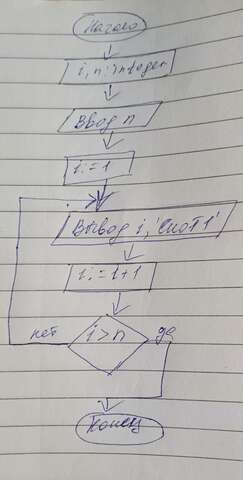 Начало
i, n: integer
Ввод n
i:=1
Вывод i,
i:=1+1
i>n
нет
да
Конец